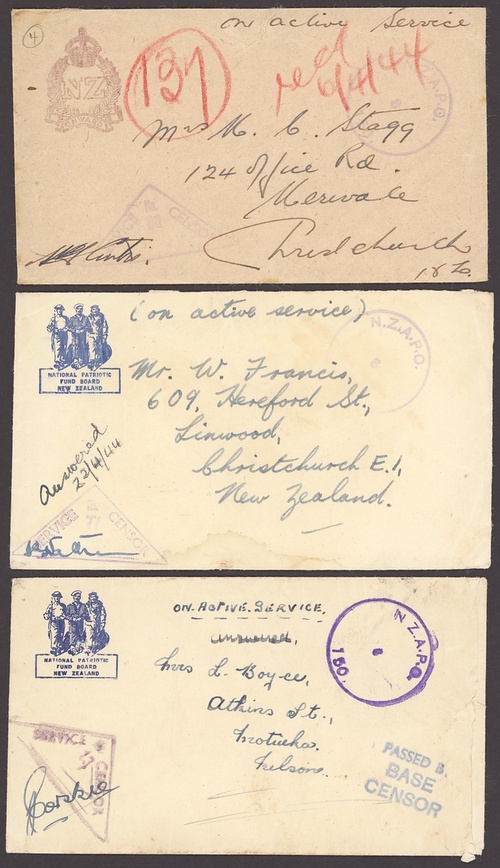 4
on active Service
137
recd
6/4/44
NZ
ONWARD
N.Z.A.P.O.
Mrs M. C. Stagg
124 Office Rd.
Merivale
Christchurch
N.Z.
CENSOR
(on active service)
N.Z.A.P.O.
6
NATIONAL PATRIOTIC
FUND BOARD
NEW ZEALAND
Mr. W. Francis,
609, Hereford St.,
Linwood,
Christchurch E.1,
New Zealand.
Answered
22/4/44
SERVICE CENSOR
77
ON. ACTIVE. SERVICE.
Answered,
N.Z.A.P.O.
6
150
NATIONAL PATRIOTIC
FUND BOARD
NEW ZEALAND
Mrs L. Boyce,
Atkins St.,
Motueka.
Nelson.
SERVICE CENSOR
PASSED B.
BASE
CENSOR